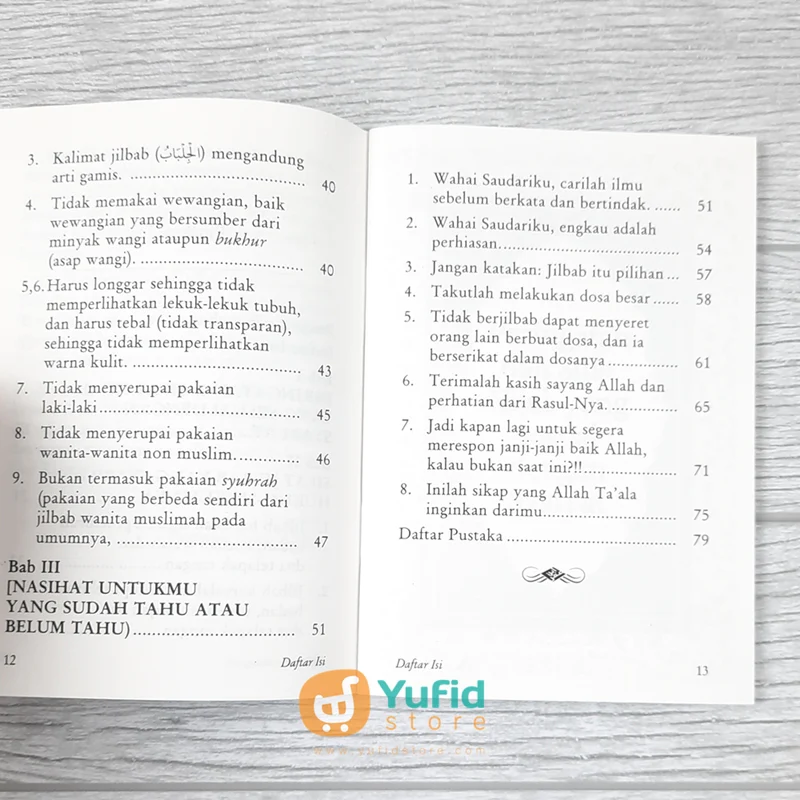 3. Kalimat jilbab (الْجِلْبَابُ) mengandung
arti gamis. .................................... 40
4. Tidak memakai wewangian, baik
wewangian yang bersumber dari
minyak wangi ataupun bukhur
(asap wangi). .................................. 40
5,6. Harus longgar sehingga tidak
memperlihatkan lekuk-lekuk tubuh,
dan harus tebal (tidak transparan),
sehingga tidak memperlihatkan
warna kulit. ................................... 43
7. Tidak menyerupai pakaian
laki-laki ......................................... 45
8. Tidak menyerupai pakaian
wanita-wanita non muslim. ............... 46
9. Bukan termasuk pakaian syuhrah
(pakaian yang berbeda sendiri dari
jilbab wanita muslimah pada
umumnya, ...................................... 47
Bab III
[NASIHAT UNTUKMU
YANG SUDAH TAHU ATAU
BELUM TAHU) ................................ 51
12 Daftar Isi
1. Wahai Saudariku, carilah ilmu
sebelum berkata dan bertindak. ...... 51
2. Wahai Saudariku, engkau adalah
perhiasan. ....................................... 54
3. Jangan katakan: Jilbab itu pilihan ... 57
4. Takutlah melakukan dosa besar ...... 58
5. Tidak berjilbab dapat menyeret
orang lain berbuat dosa, dan ia
berserikat dalam dosanya ................ 61
6. Terimalah kasih sayang Allah dan
perhatian dari Rasul-Nya. ................ 65
7. Jadi kapan lagi untuk segera
merespon janji-janji baik Allah,
kalau bukan saat ini?!! ..................... 71
8. Inilah sikap yang Allah Ta'ala
inginkan darimu .............................. 75
Daftar Pustaka ..................................... 79
Daftar Isi 13
Yufid
store
www.yufidstore.com